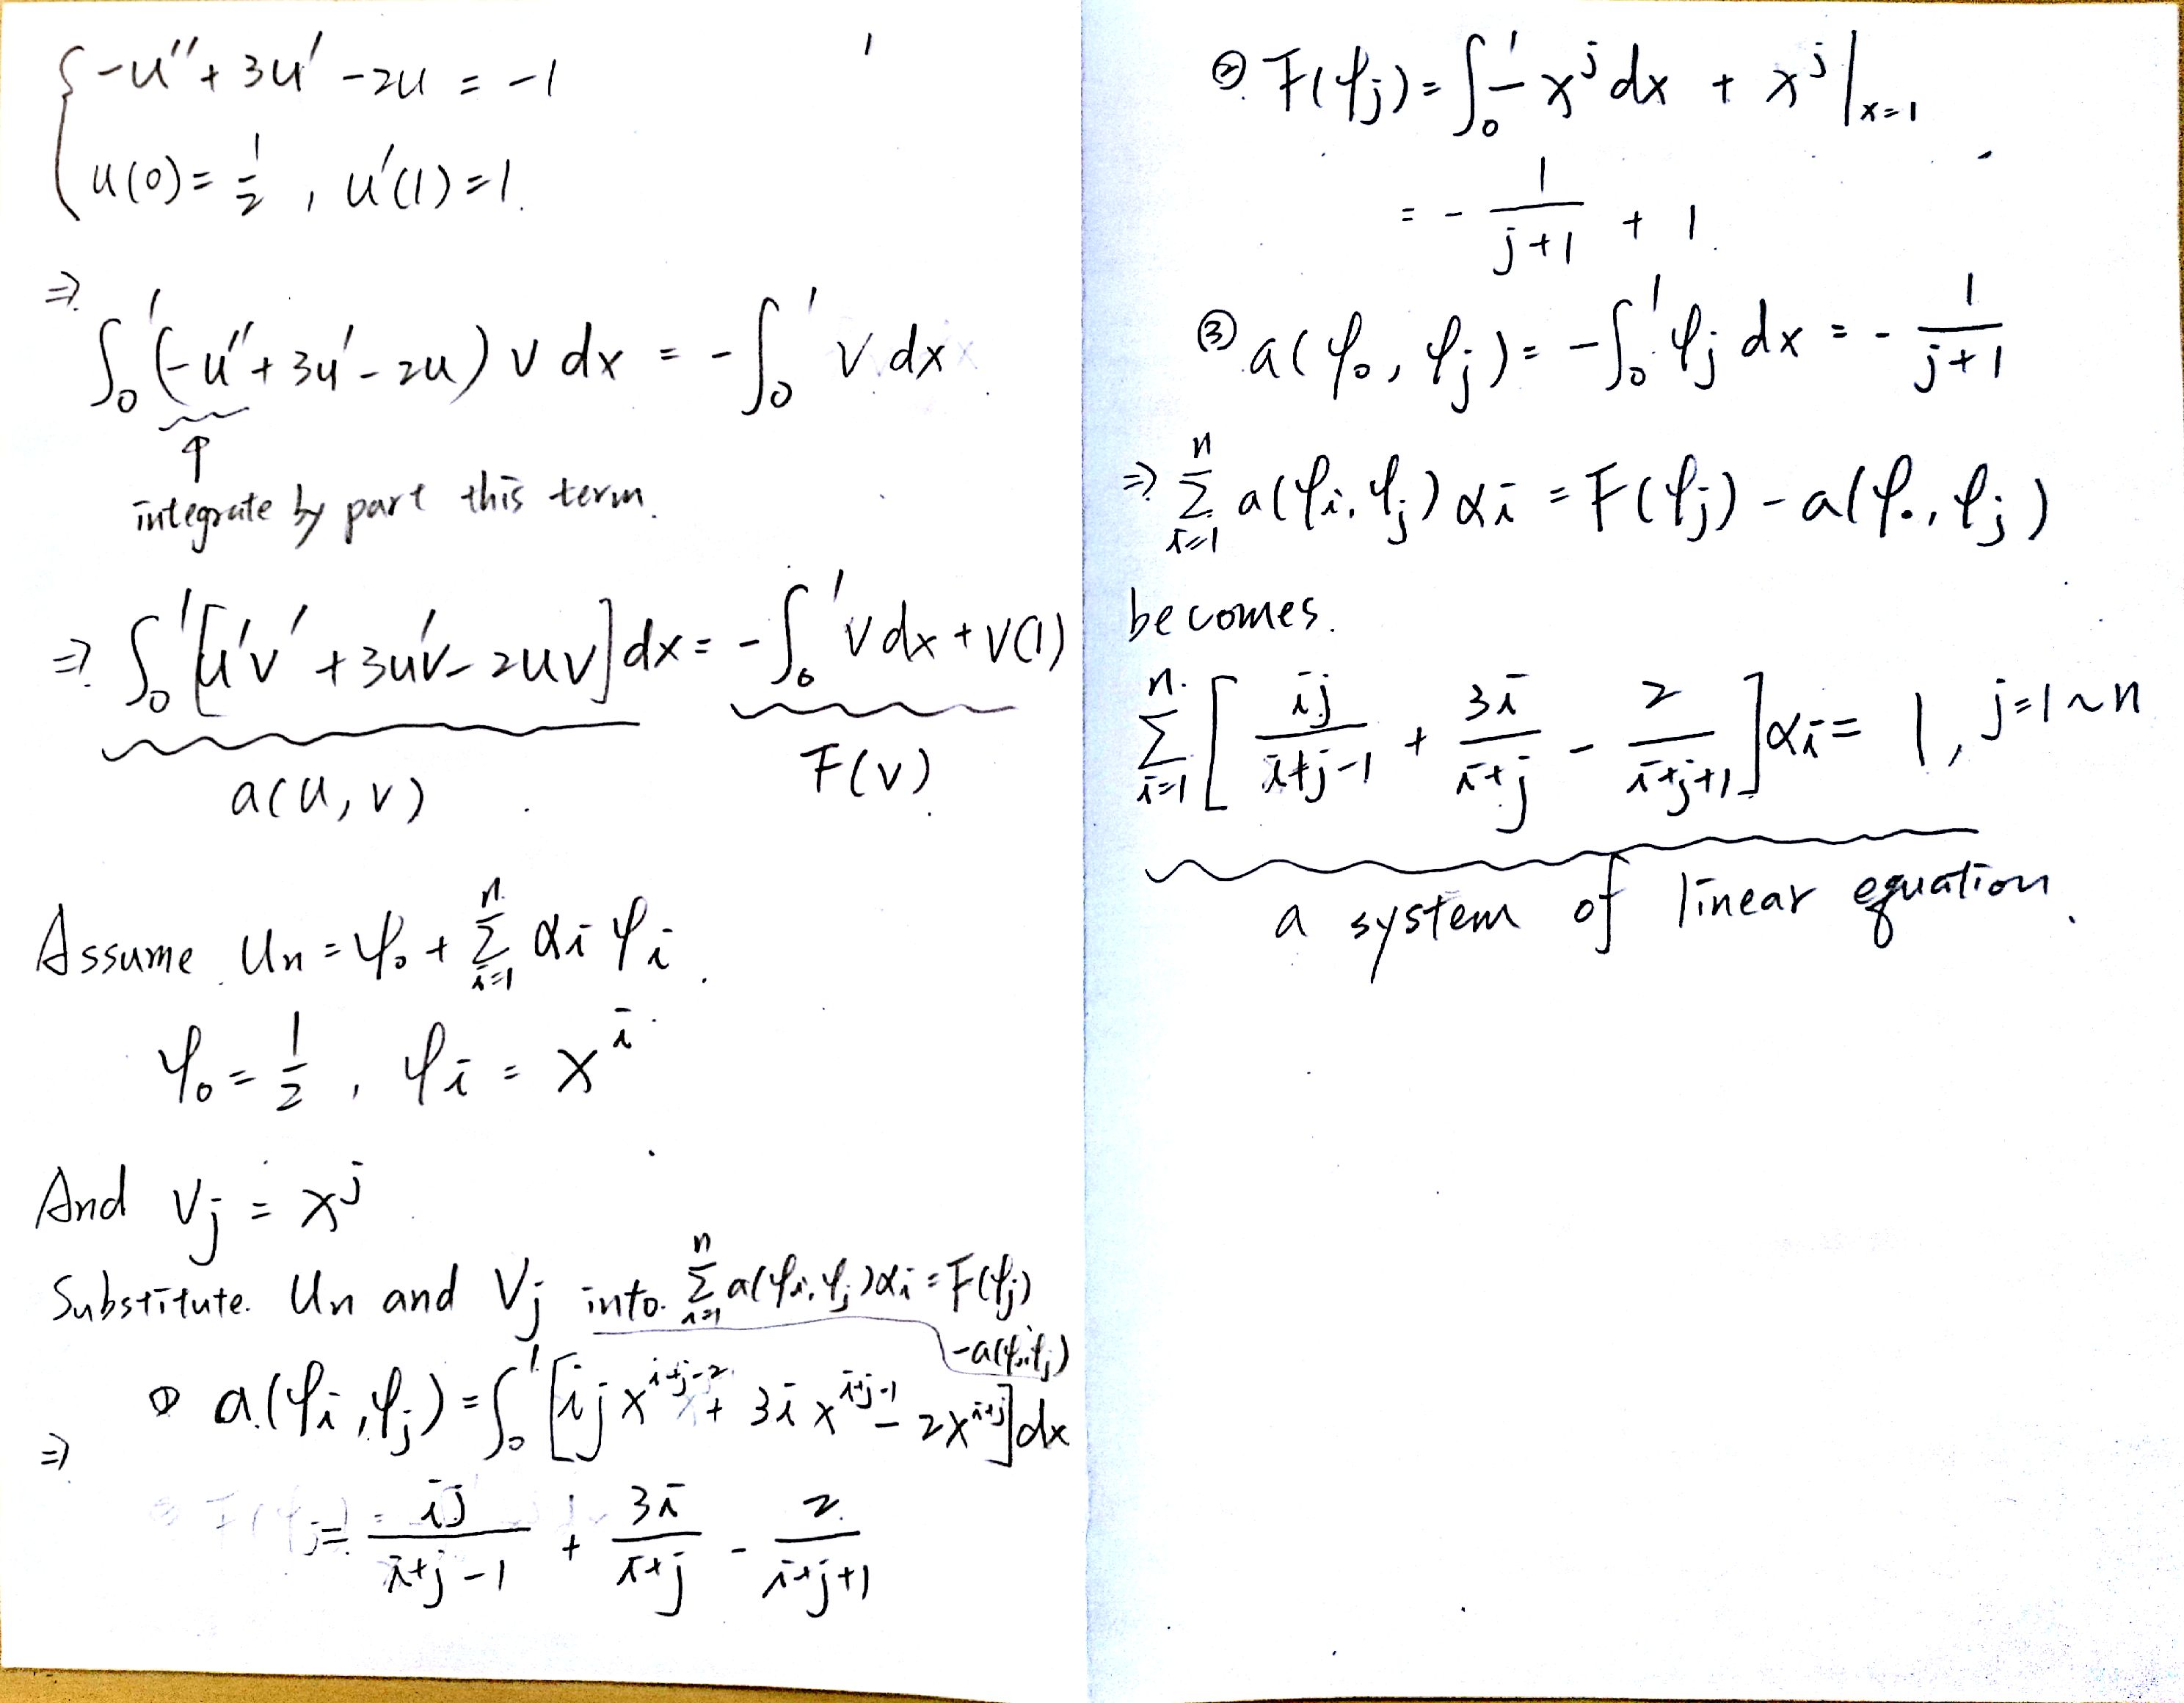 { -u'' + 3u' - 2u = -1
u(0) = 1/2, u'(1) = 1.
⇒ ∫₀¹ (-u'' + 3u' - 2u) v dx = -∫₀¹ v dx
↑
integrate by part this term.
⇒ ∫₀¹ [u'v' + 3u'v - 2uv] dx = -∫₀¹ v dx + v(1)
a(u, v) F(v)
Assume Un = φ₀ + Σᵢ₌₁ⁿ αi φi.
φ₀ = 1/2, φi = xⁱ
And Vj = xʲ
Substitute Un and Vj into Σᵢ₌₁ⁿ a(φi, φj) αi = F(φj)
-a(φ₀, φj)
⇒ ① a(φi, φj) = ∫₀¹ [ij x^{i+j-2} + 3i x^{i+j-1} - 2x^{i+j}] dx
= ij/(i+j-1) + 3i/(i+j) - 2/(i+j+1)
② F(φj) = ∫₀¹ - xʲ dx + xʲ |x=1
= - 1/(j+1) + 1.
③ a(φ₀, φj) = -∫₀¹ φj dx = - 1/(j+1)
⇒ Σᵢ₌₁ⁿ a(φi, φj) αi = F(φj) - a(φ₀, φj)
becomes.
Σᵢ₌₁ⁿ [ ij/(i+j-1) + 3i/(i+j) - 2/(i+j+1) ] αi = 1, j=1~n
a system of linear equation.